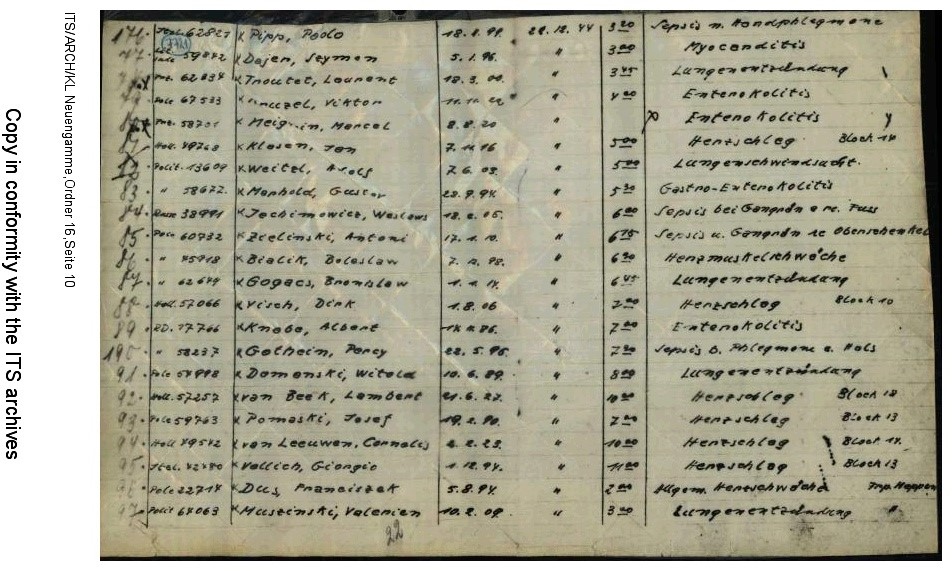 ITS/ARCH/KL Neuengamme, Ordner 16, Seite 10
Copy in conformity with the ITS archives
176. Ital. 62821 x Pipp, Paolo 18.1.99. 22.12.44 3 20 Sepsis n. Handphlegmone
77. 59842 x Dajen, Seymen 5.1.96. " 3 00 Myocarditis
62834 x Troutet, Laurent 18.3.00. " 3 45 Lungenentzündung
Pole 67533 Viktor 11.11.22 " 4 00 Enterokolitis
Frz. 58701 Marcel 8.8.20 Enterokolitis
Holl. 49768 x Klasen, Jan 7.11.16 " 5 00 Herzschlag Block 14
Polit. 13609 x Weitel, 7.6.03. " 5 00 Lungenschwindsucht.
83 " 58672. x Manhold, Gustav 22.9.94. " 5 30 Gastro-Enterokolitis
84. Russ 38991 x Jachimowicz, Weslaws 18.2.05. " 6 00 Sepsis bei Gangrän e re. Fuss
85. Pole 60732 x Zielinski, Antoni 17.1.10. " 6 15 Sepsis u. Gangrän re Oberschenkel
86 " 45918 x Bialik, Boleslaw 7.12.98. " 6 30 Herzmuskelschwäche
87 " 62649 x Gogacs, Bronislaw 1.1.14. " 6 45 Lungenentzündung
88. Holl. 57066 x Visch, Dirk 1.8.06 " 7 00 Herzschlag Block 10
89 RD. 17766 x Knabe, Albert 86. " 7 00 Enterokolitis
190. " 58237 x Gothein, Percy 22.5.96. " 7 30 Sepsis b. Phlegmone a. Hals
91. Pole 54998 x Domanski, Witold 10.6.89. " 8 00 Lungenentzündung
92. Holl. 57257 x van Beek, Lambert 21.6.27. " 10 00 Herzschlag Block 18
93. Pole 59763 x Pomaski, Josef 19.2.90. " 7 00 Herzschlag Block 13
94. Holl 49542 x van Leeuwen, Cornelis 2.2.23. " 10 00 Herzschlag Block 14.
95. Ital. 42440 x Vallich, Giorgio 1.12.94. " 11 00 Herzschlag Block 13
96 Pole 22714 x Dus, Franciszek 5.8.94. " 2 00 Allgem. Herzschwäche Trp. Meppen
97. Polit 64063 x Muszinski, Valerien 10.2.09. " 3 30 Lungenentzündung "
22